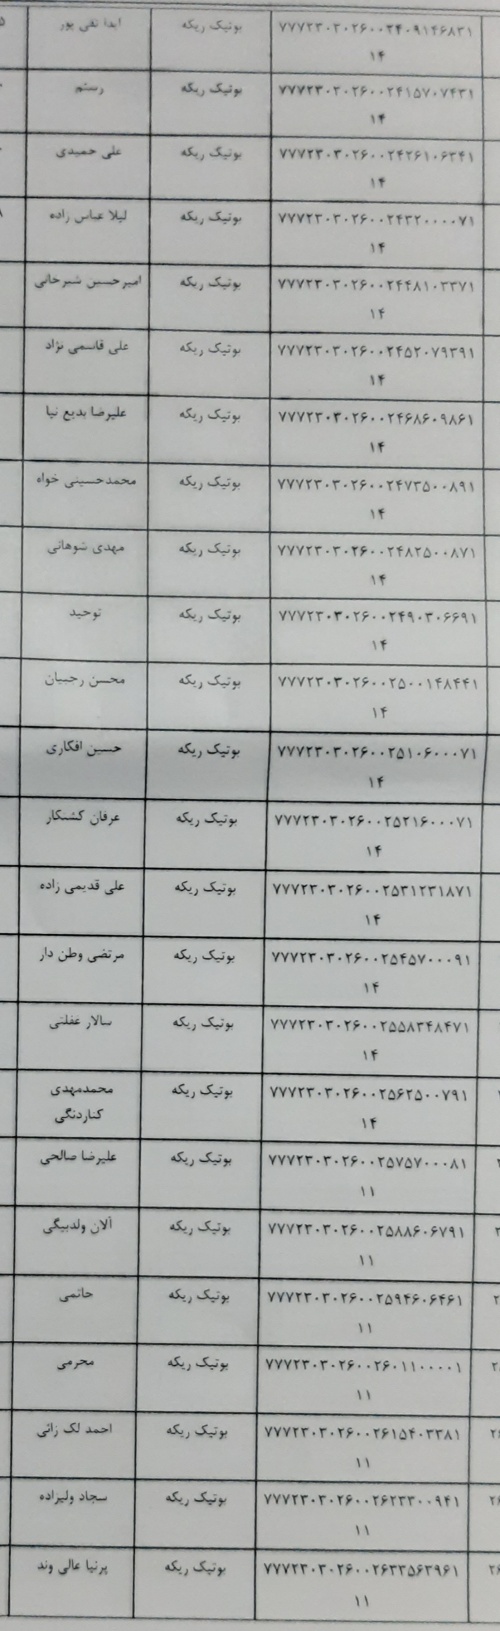 ۷۷۷۲۳۰۳۰۲۶۰۰۲۴۰۹۱۴۶۸۳۱ بوتیک ریکه آیدا تقی پور
۱۴
۷۷۷۲۳۰۳۰۲۶۰۰۲۴۱۵۷۰۷۴۳۱ بوتیک ریکه رستم
۱۴
۷۷۷۲۳۰۳۰۲۶۰۰۲۴۲۶۱۰۶۳۴۱ بوتیک ریکه علی حمیدی
۱۴
۷۷۷۲۳۰۳۰۲۶۰۰۲۴۳۲۰۰۰۰۷۱ بوتیک ریکه لیلا عباس زاده
۱۴
۷۷۷۲۳۰۳۰۲۶۰۰۲۴۴۸۱۰۳۳۷۱ بوتیک ریکه امیرحسین شیرخانی
۱۴
۷۷۷۲۳۰۳۰۲۶۰۰۲۴۵۲۰۷۹۳۹۱ بوتیک ریکه علی قاسمی نژاد
۱۴
۷۷۷۲۳۰۳۰۲۶۰۰۲۴۶۸۶۰۹۸۶۱ بوتیک ریکه علیرضا بدیع نیا
۱۴
۷۷۷۲۳۰۳۰۲۶۰۰۲۴۷۳۵۰۰۸۹۱ بوتیک ریکه محمدحسینی خواه
۱۴
۷۷۷۲۳۰۳۰۲۶۰۰۲۴۸۲۵۰۰۸۷۱ بوتیک ریکه مهدی شوهانی
۱۴
۷۷۷۲۳۰۳۰۲۶۰۰۲۴۹۰۳۰۶۶۹۱ بوتیک ریکه توحید
۱۴
۷۷۷۲۳۰۳۰۲۶۰۰۲۵۰۰۱۴۸۴۴۱ بوتیک ریکه محسن رجبیان
۱۴
۷۷۷۲۳۰۳۰۲۶۰۰۲۵۱۰۶۰۰۰۷۱ بوتیک ریکه حسین افکاری
۱۴
۷۷۷۲۳۰۳۰۲۶۰۰۲۵۲۱۶۰۰۰۷۱ بوتیک ریکه عرفان کشتکار
۱۴
۷۷۷۲۳۰۳۰۲۶۰۰۲۵۳۱۲۳۱۸۷۱ بوتیک ریکه علی قدیمی زاده
۱۴
۷۷۷۲۳۰۳۰۲۶۰۰۲۵۴۵۷۰۰۰۹۱ بوتیک ریکه مرتضی وطن دار
۱۴
۷۷۷۲۳۰۳۰۲۶۰۰۲۵۵۸۳۴۸۴۷۱ بوتیک ریکه سالار غفلتی
۱۴
۷۷۷۲۳۰۳۰۲۶۰۰۲۵۶۲۵۰۰۷۹۱ بوتیک ریکه محمدمهدی
۱۴ کناردنگی
۷۷۷۲۳۰۳۰۲۶۰۰۲۵۷۵۷۰۰۰۸۱ بوتیک ریکه علیرضا صالحی
۱۱
۷۷۷۲۳۰۳۰۲۶۰۰۲۵۸۸۶۰۶۷۹۱ بوتیک ریکه آلان ولدبیگی
۱۱
۷۷۷۲۳۰۳۰۲۶۰۰۲۵۹۴۶۰۶۴۶۱ بوتیک ریکه حاتمی
۱۱
۷۷۷۲۳۰۳۰۲۶۰۰۲۶۰۱۱۰۰۰۰۱ بوتیک ریکه محرمی
۱۱
۷۷۷۲۳۰۳۰۲۶۰۰۲۶۱۵۴۰۳۳۸۱ بوتیک ریکه احمد لک زائی
۱۱
۷۷۷۲۳۰۳۰۲۶۰۰۲۶۲۳۳۰۰۹۴۱ بوتیک ریکه سجاد ولیزاده
۱۱
۷۷۷۲۳۰۳۰۲۶۰۰۲۶۳۳۵۶۳۹۶۱ بوتیک ریکه پرنیا عالی وند
۱۱